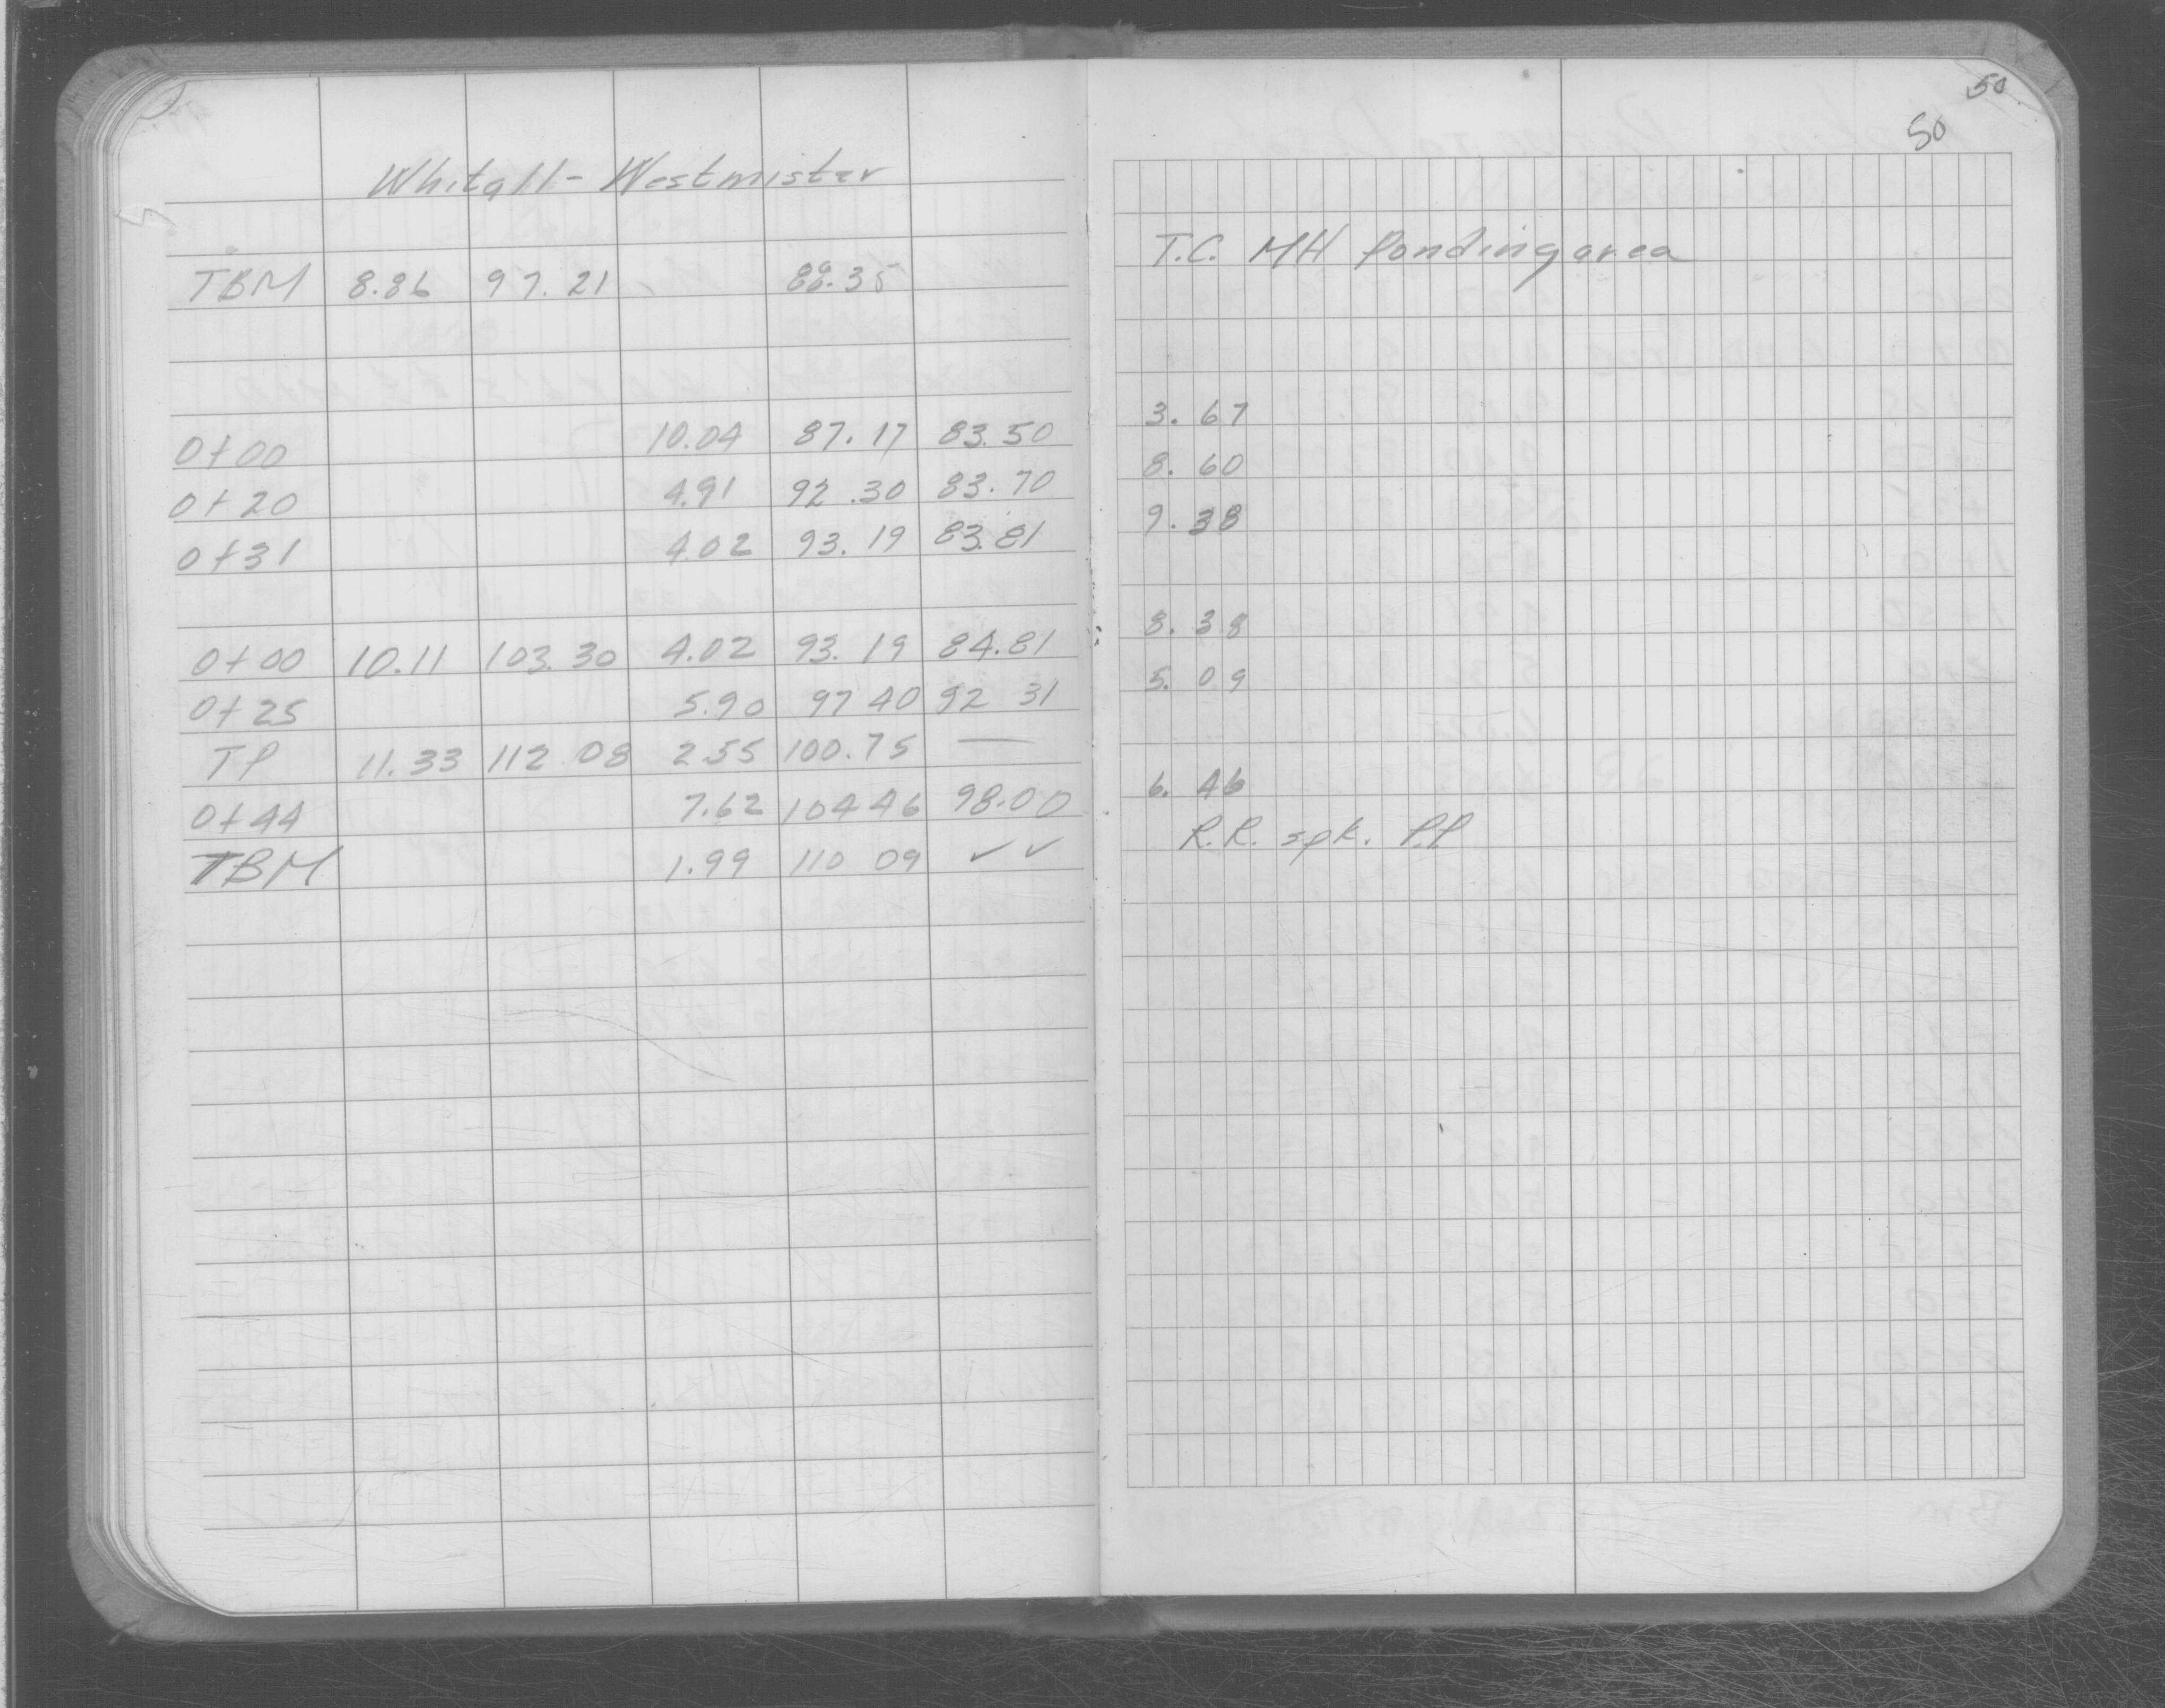 50
50
Whitall - Westmister
TBM 8.86 97.21 88.35
0+00 10.04 87.17 83.50
0+20 4.91 92.30 83.70
0+31 4.02 93.19 83.81
0+00 10.11 103.30 4.02 93.19 84.81
0+25 5.90 97 40 92 31
TP 11.33 112 08 2.55 100.75 —
0+44 7.62 104 46 98.00
TBM 1.99 110 09 ✓ ✓
T.C. MH Ponding area
3. 67
8. 60
9. 38
8. 38
5. 09
6. 46
R.R. spk. P.P